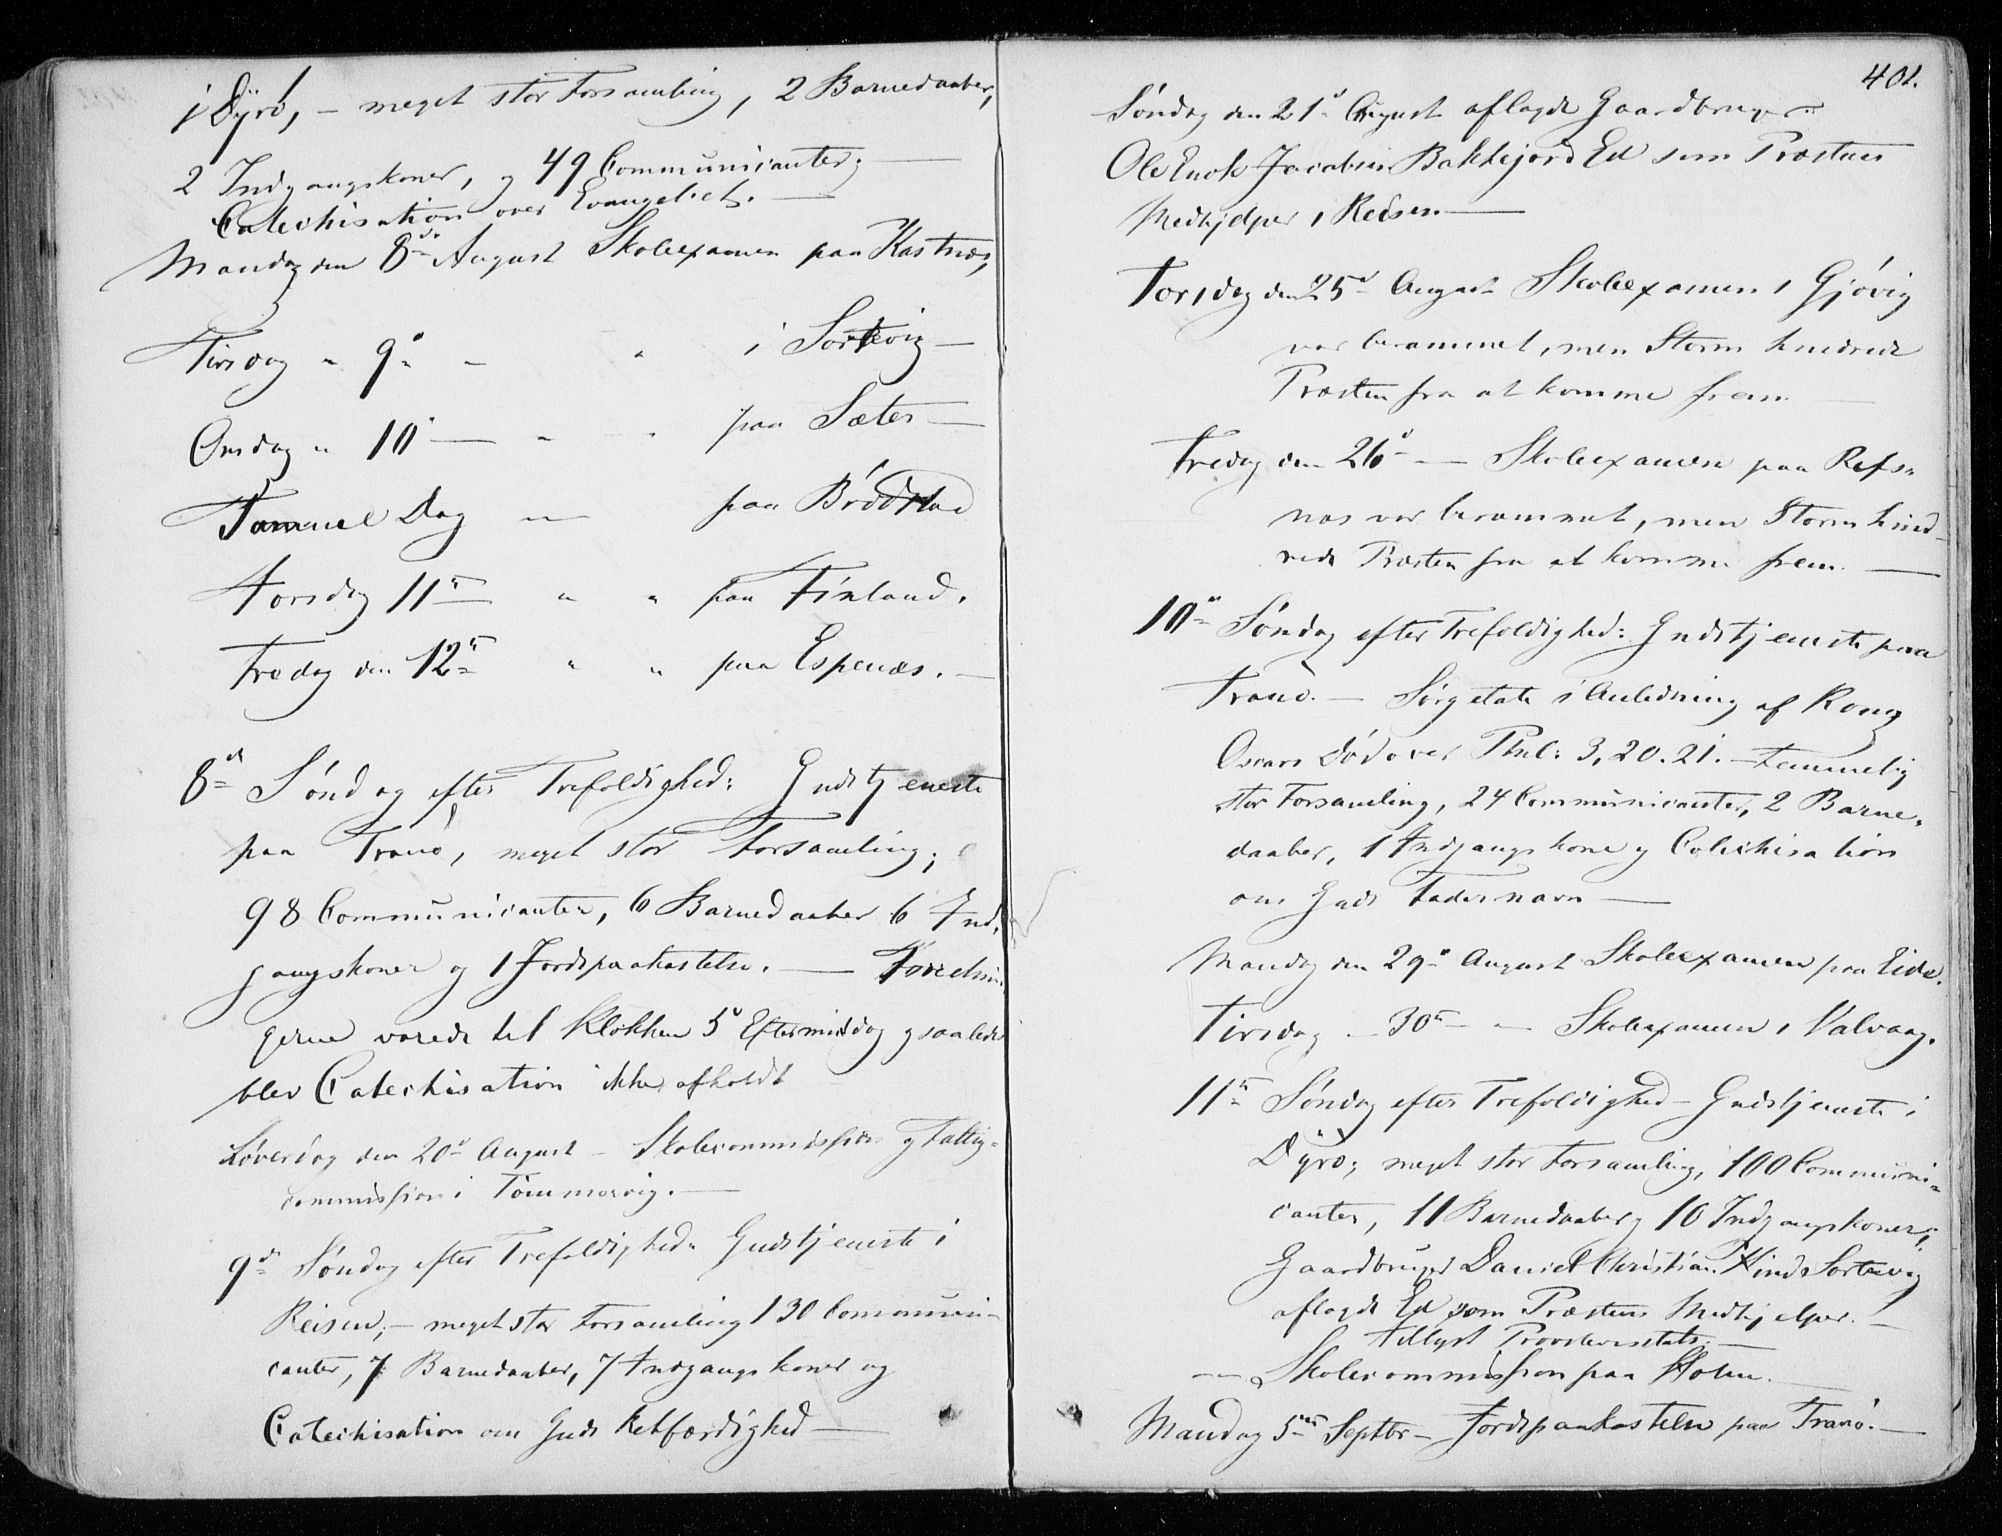 i Dyrö, – meget stor Forsamling, 2 Barnedaaber,
2 Indgangskoner, og 49 Communicanter;
Catechisation over Evangeliet.
Mandag den 8de August Skoleexamen paa Kastnæs,
Tirsdag " 9" – " i Sortevig –
Onsdag " 10 – " " paa Sæter –
Samme Dag " – paa Brödstad
Torsdag 11te " " paa Finland.
Fredag den 12te " " paa Espenæs. –
8de Söndag efter Trefoldighed: Gudstjeneste
paa Tranö, meget stor Forsamling;
98 Communicanter, 6 Barnedaaber 6 Ind-
gangskoner og 1 Jordspaakastelse. – Forretnin
gerne varede til Klokken 5 Eftermiddag og saaledes
blev Catechisation ikke afholdt
Löverdag den 20de August – Skolecommission og Fattig-
commission i Tömmervig. –
9de Söndag efter Trefoldighed: Gudstjeneste i
Reisen; – meget stor Forsamling 130 Communi-
canter, 7 Barnedaaber, 7 Indgangskoner og
Catechisation om Guds Retfærdighed –
401.
Söndag den 21de August aflagde Gaardbruger
Ole Enok Jacobsen Bakkejord Ed som Præstens
Medhjelper i Reisen. –
Torsdag den 25de August Skoleexamen i Gjövig
var berammet, men Storm hindrede
Præsten fra at komme frem –
Fredag den 26de – Skoleexamen paa Refs-
næs var berammet, men Storm hind-
rede Præsten fra at komme frem. –
10de Söndag efter Trefoldighed: Gudstjeneste paa
Tranö. – Sörgetale i Anledning af Kong
Oscars Död over Phil: 3, 20. 21. – temmelig
stor Forsamling, 24 Communicanter, 2 Barne-
daaber, 1 Indgangskone og Catechisation
om Guds Fadernavn –
Mandag den 29de August Skoleexamen paa Eide.
Tirsdag – 30te – " Skoleexamen i Valvaag.
11te Söndag efter Trefoldighed – Gudstjeneste i
Dyrö; meget stor Forsamling, 100 Communi-
canter, 11 Barnedaaber og 10 Indgangskoner;
Gaardbruger Daniel Christian Hind Sortevig
aflagde Ed som Præstens Medhjelper. –
tillyst Provstevisitats. –
– Skolecommission paa Holm. –
Mandag 5te Septbr – Jordspaakastelse paa Tranö. –